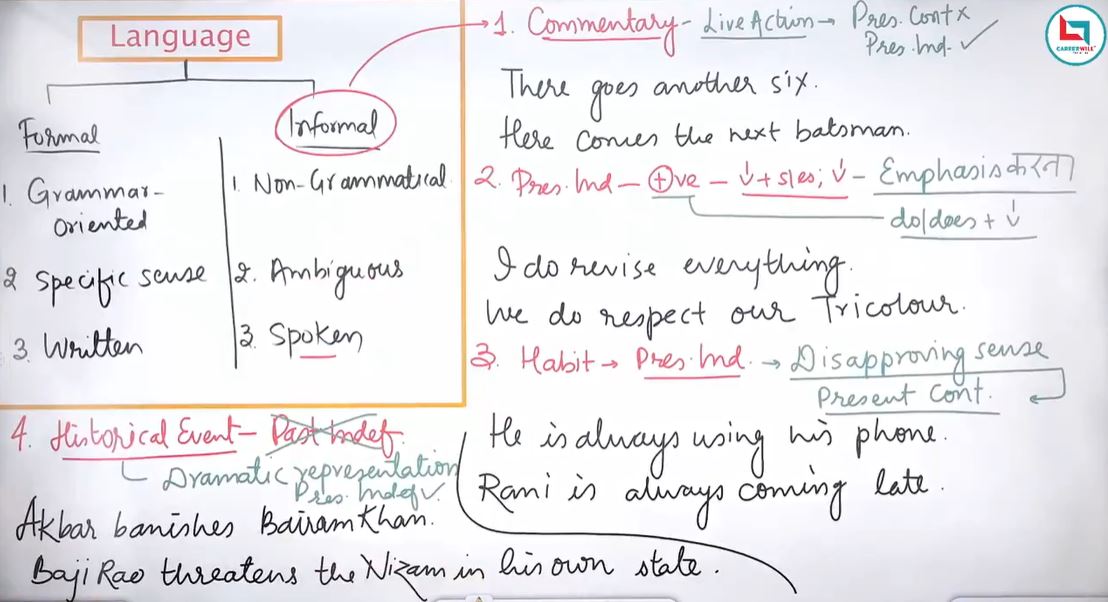 Language
Formal
1. Grammar-
oriented
2 Specific sense
3. Written
Informal
1. Non-Grammatical
2. Ambiguous
3. Spoken
1. Commentary - Live Action → Pres. Cont x
Pres. Ind. ✓
There goes another six.
Here comes the next batsman.
2. Pres. Ind - +ve - V + s/es; V - Emphasis करना
do/does + V
I do revise everything.
We do respect our Tricolour.
3. Habit → Pres. Ind. → Disapproving sense
Present Cont.
He is always using his phone.
Rani is always coming late.
4. Historical Event - Past Indef.
Dramatic representation
Pres. Indef ✓
Akbar banishes Bairam Khan.
Baji Rao threatens the Nizam in his own state.
CAREERWILL